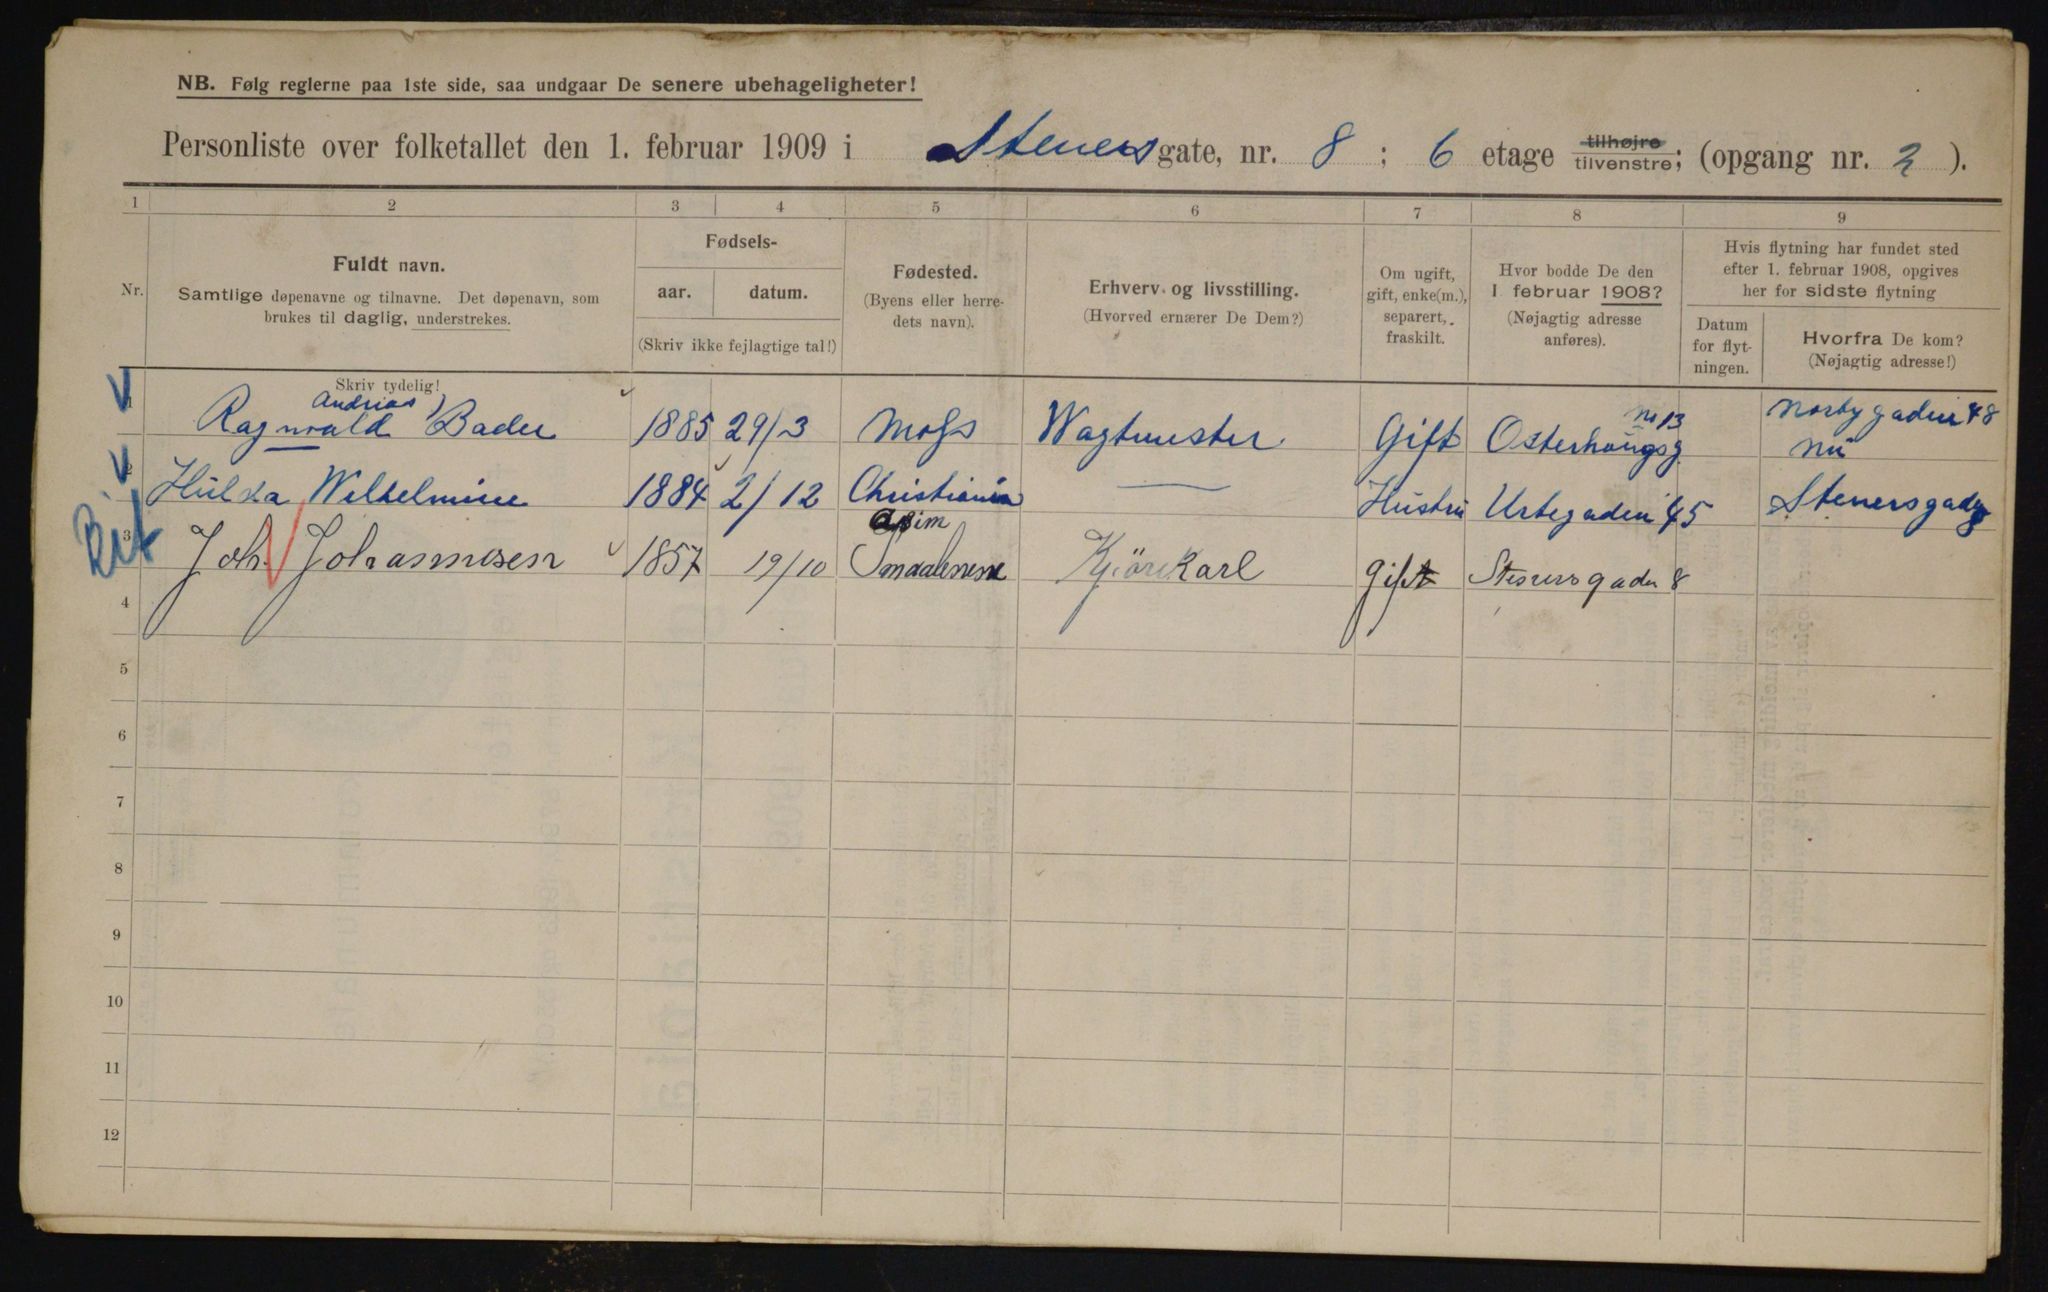 NB. Følg reglerne paa 1ste side, saa undgaar De senere ubehageligheter!
Personliste over folketallet den 1. februar 1909 i Steners gate, nr. 8; 6 etage tilhøjre tilvenstre; (opgang nr. 2).
1 2 3 4 5 6 7 8 9
Nr.
Fuldt navn.
Samtlige døpenavne og tilnavne. Det døpenavn, som
brukes til daglig, understrekes.
Skriv tydelig!
Fødsels-
aar. datum.
(Skriv ikke fejlagtige tal!)
Fødested.
(Byens eller herre-
dets navn).
Erhverv og livsstilling.
(Hvorved ernærer De Dem?)
Om ugift,
gift, enke(m.),
separert,
fraskilt.
Hvor bodde De den
1 februar 1908?
(Nøjagtig adresse
anføres).
Hvis flytning har fundet sted
efter 1. februar 1908, opgives
her for sidste flytning
Datum
for flyt-
ningen.
Hvorfra De kom?
(Nøjagtig adresse!)
1 Ragnvald Andrias Bader 1885 29/3 Moss Wagtmester Gift Osterhougsg no 13 Norbygaden 48
nu
2 Hulda Wilhelmine 1884 2/12 Christiania — Hustru Urtegaden 45 Stenersgade
3 Joh. Johannesen 1857 19/10 Asim Smaalenene Kjörekarl Gift Stenersgaden 8
4
5
6
7
8
9
10
11
12